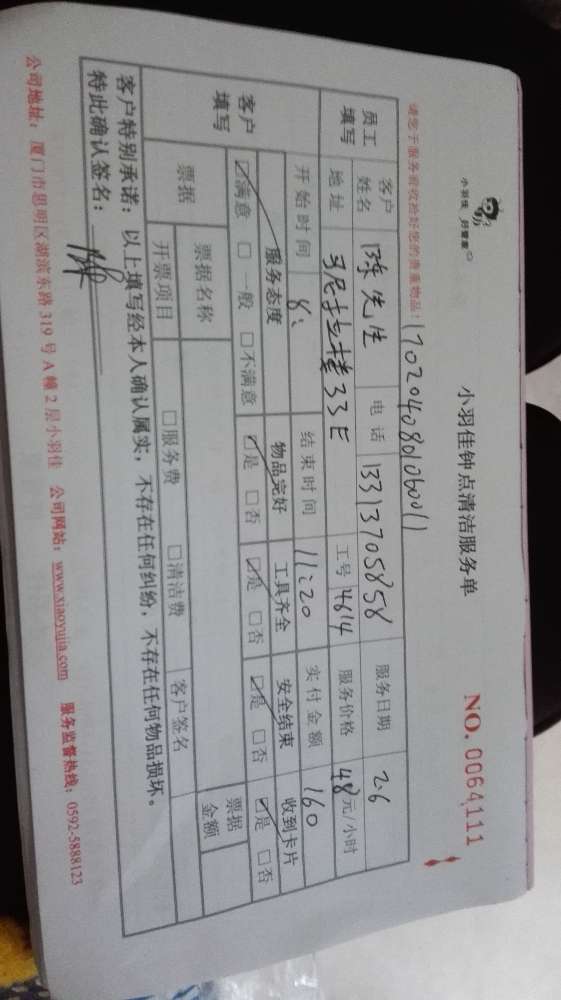 小羽佳 好管家
小羽佳钟点清洁服务单
NO. 0064111
请您于服务前收拾好您的贵重物品！
1702040801060011
员工填写 客户姓名 陈先生 电话 13313705858 服务日期 2.6
地址 33E 工号 4614 服务价格 48元/小时
开始时间 8: 结束时间 11:20 实付金额 160
客户填写 服务态度 物品完好 工具齐全 安全结束 收到卡片
☑满意 □一般 □不满意 ☑是 □否 ☑是 □否 ☑是 □否 ☑是 □否
票据 票据名称 票据金额
开票项目 □服务费 □清洁费 客户签名
客户特别承诺：以上填写经本人确认属实，不存在任何纠纷，不存在任何物品损坏。
特此确认签名：
公司地址：厦门市思明区湖滨东路319号A幢2层小羽佳 公司网站：www.xiaoyujia.com 服务监督热线：0592-5888123